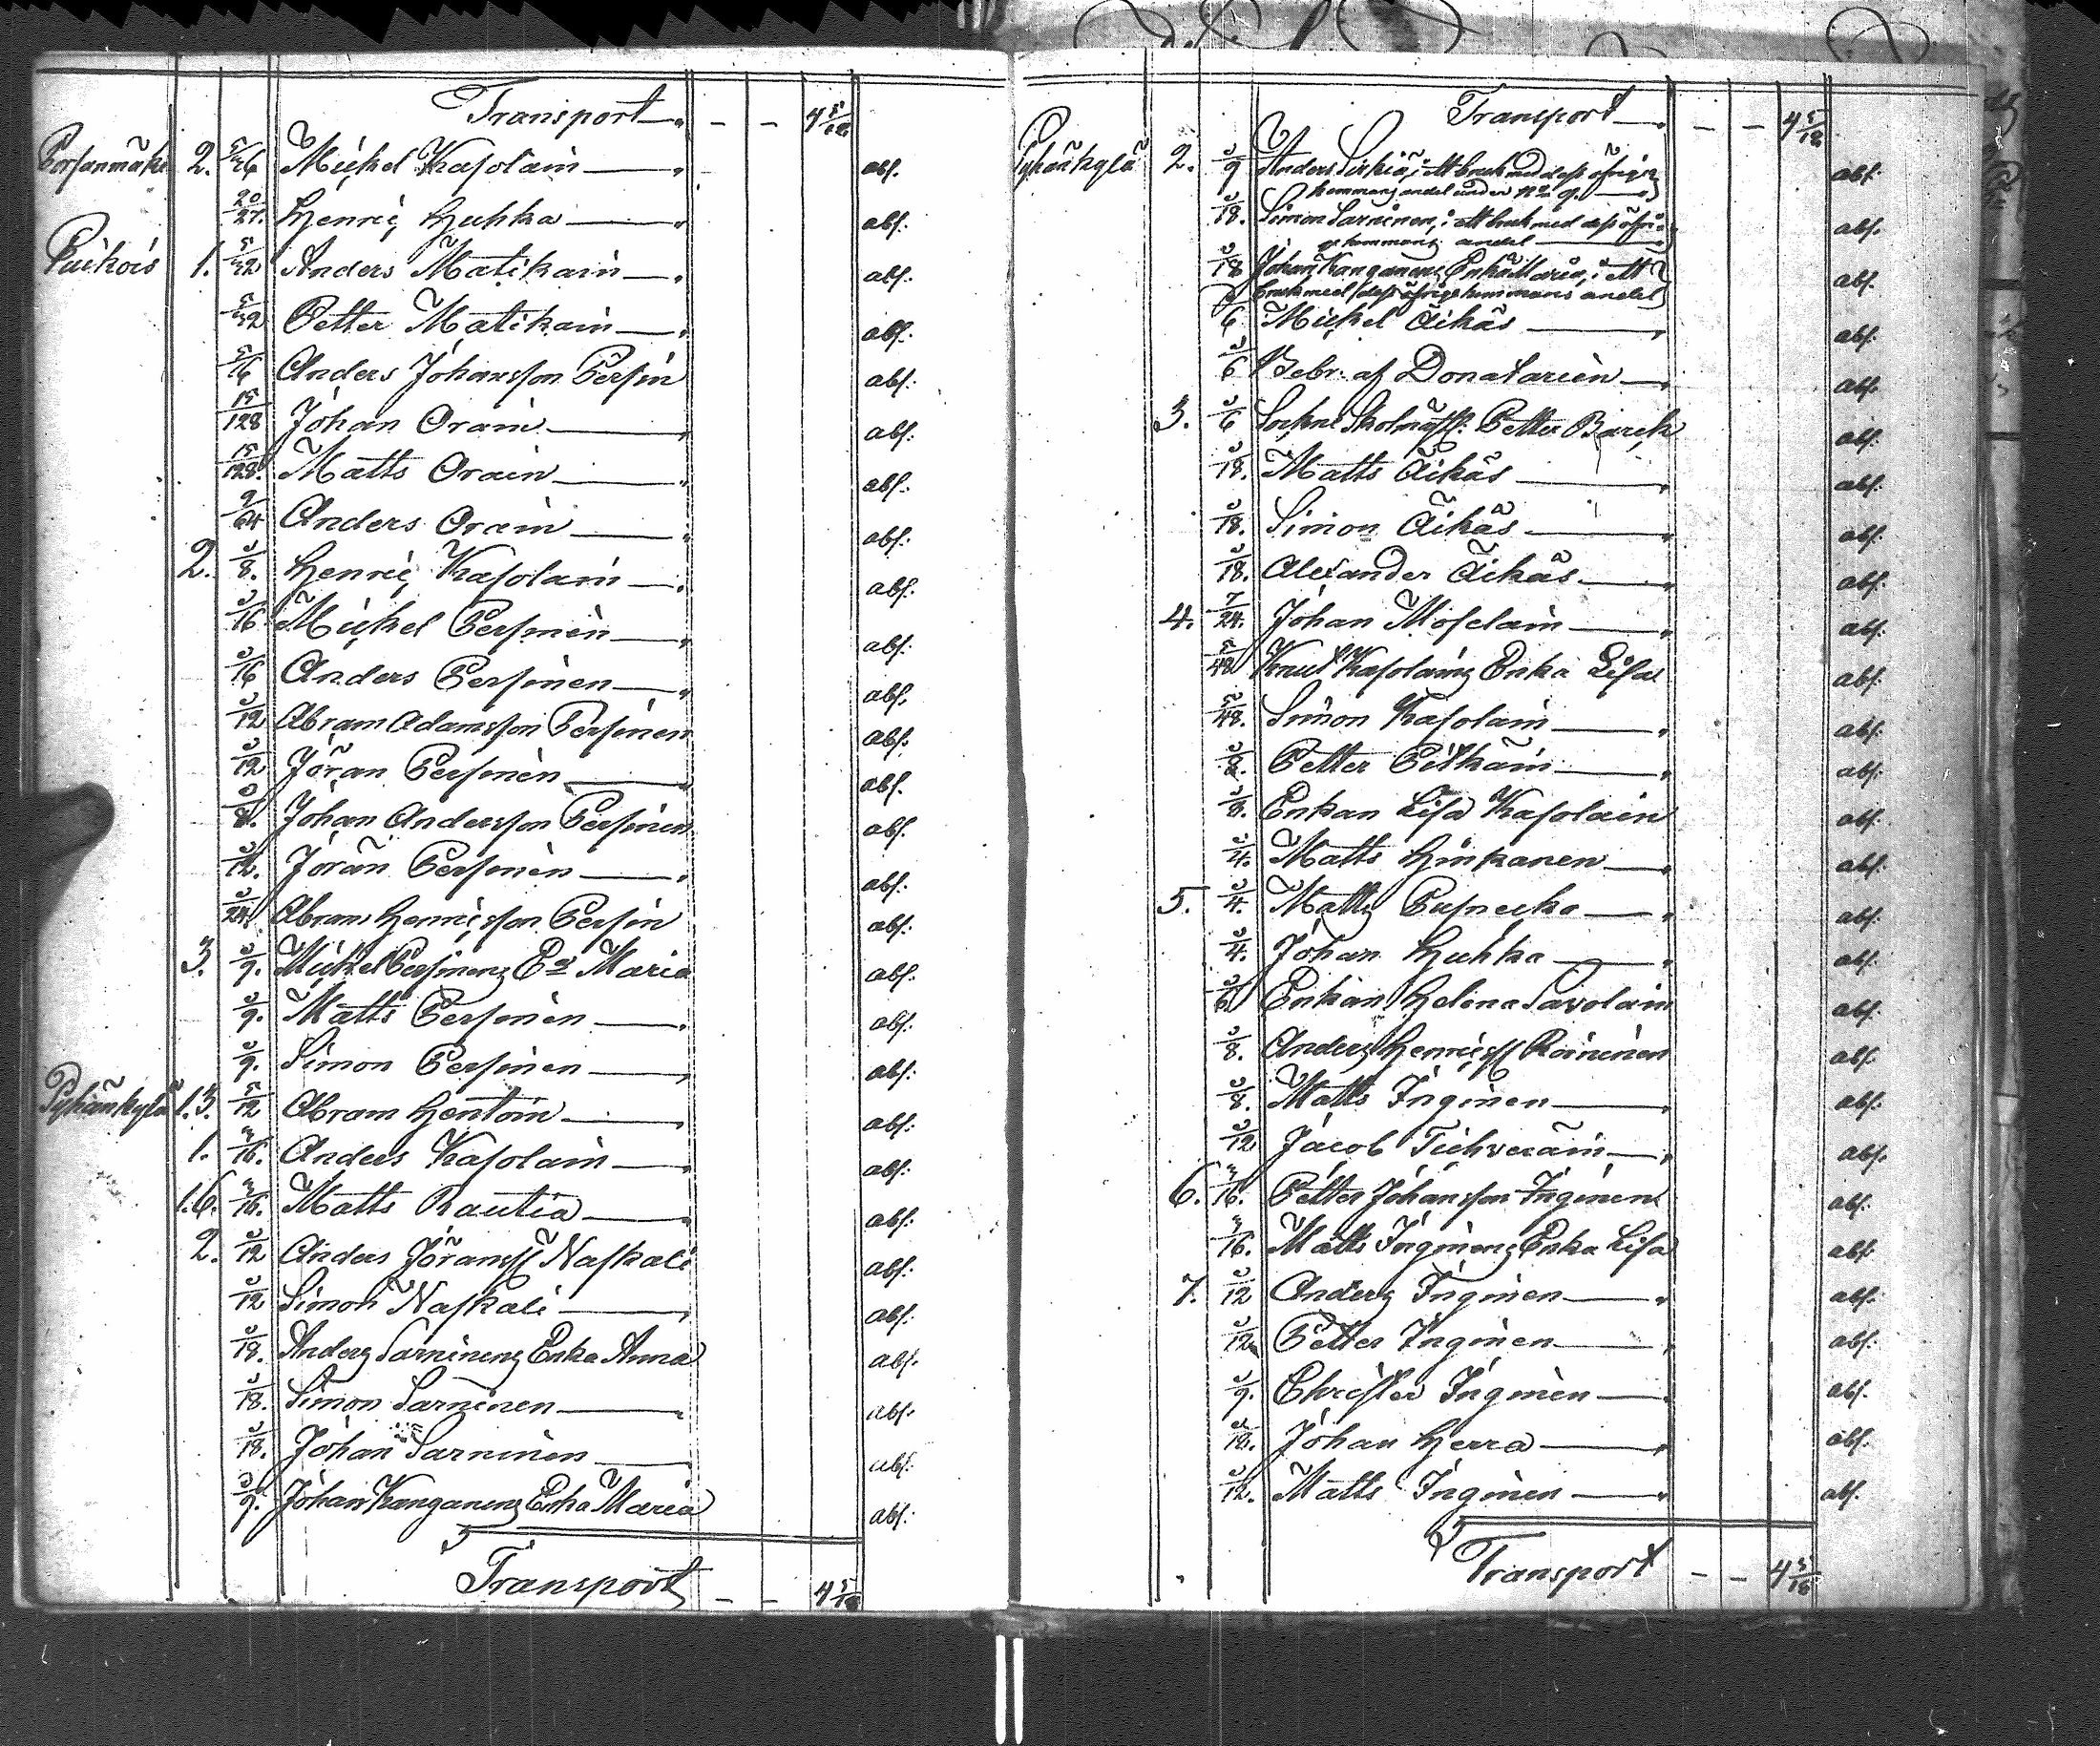 Transport - - 4 5/18
Porsanmäki 2. Mickel Kasolain abs.
20/27. Henric Huhka abs.
Puikois 1. 5/32 Anders Matikain abs.
5/32 Petter Matikain abs.
5/16 Anders Johansson Persin abs.
15/128 Johan Orain abs.
15/128. Matts Orain abs.
9/64 Anders Orain abs.
2. 1/8. Henric Kasolain abs.
1/16 Mickel Persinen abs.
1/16 Anders Persinen abs.
1/12 Abram Adamsson Persinen abs.
1/12 Jöran Persinen abs.
1/8. Johan Andersson Persinen abs.
1/12. Jöran Persinen abs.
1/24. Abram Henricsson Persin abs.
3. 1/9. Mickel Persinens Ea Maria abs.
1/9. Matts Persinen abs.
1/9. Simon Persinen abs.
Pyhänkylä 1.3. 5/12 Abram Hentoin abs.
1. 3/16. Anders Kasolain abs.
1.6. 3/16. Matts Rautia abs.
2. 1/12 Anders Jöranss Naskali abs.
1/12 Simon Naskali abs.
1/18. Anders Sarninens Enka Anna abs.
1/18. Simon Sarninen abs.
1/18. Johan Sarninen abs.
1/9. Johan Kanganens Enka Maria abs.
Transport - - 4 5/18
Transport - - 4 5/18
Pyhäkylä 2. 1/9 Anders Sirkiä, i ett bruk med dess öfriga abs.
hemmans andel under No 9.
1/18. Simon Sarninen, i ett bruk med dess öfri- abs.
ge hemmans andel
1/18 Johan Kanganens Enka Maria, i ett abs.
bruk med dess öfrige hemmans andel
1/6 Mickel Äikäs abs.
1/6 Bebr. af Donatarien abs.
3. 1/6 Sockne Skolmäst: Petter Barck abs.
1/18. Matts Äikäs abs.
1/18. Simon Äikäs abs.
1/18. Alexander Äikäs abs.
4. 7/24. Johan Moselain abs.
5/48 Knut Kasolains Enka Lisa abs.
5/48. Simon Kasolain abs.
1/8. Petter Pitkäin abs.
1/8. Enkan Lisa Kasolain abs.
1/4. Matts Hinkanen abs.
5. 1/4. Matts Pusnecka abs.
1/4. Johan Huhka abs.
1/6 Enkan Helena Savolain abs.
1/8. Anders Henricss Roininen abs.
1/8. Matts Inginen abs.
1/12 Jacob Tichveräin abs.
6. 3/16. Petter Johansson Inginen abs.
3/16. Matts Inginens Enka Lisa abs.
7. 1/12 Anders Inginen abs.
1/12 Petter Inginen abs.
1/9. Christer Inginen abs.
1/12. Johan Herra abs.
1/12. Matts Inginen abs.
Transport - - 4 5/18